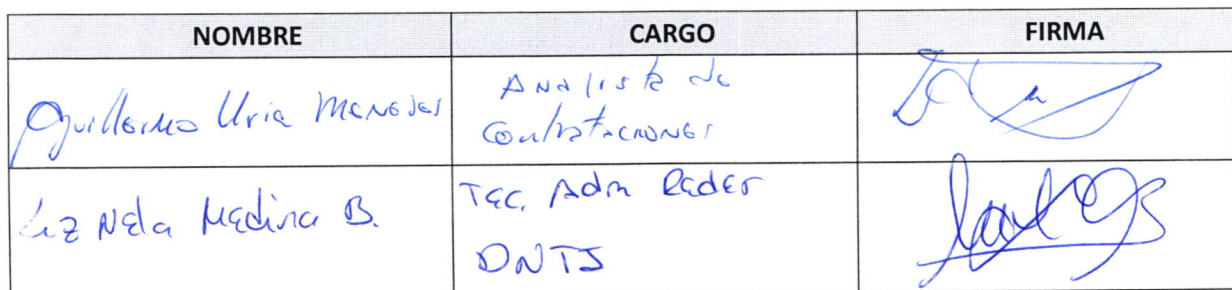 NOMBRE CARGO FIRMA
Guillermo Uria Meneses Analista de
Contrataciones
Luz Nela Medina B. Tec. Adm Redes
DNTS